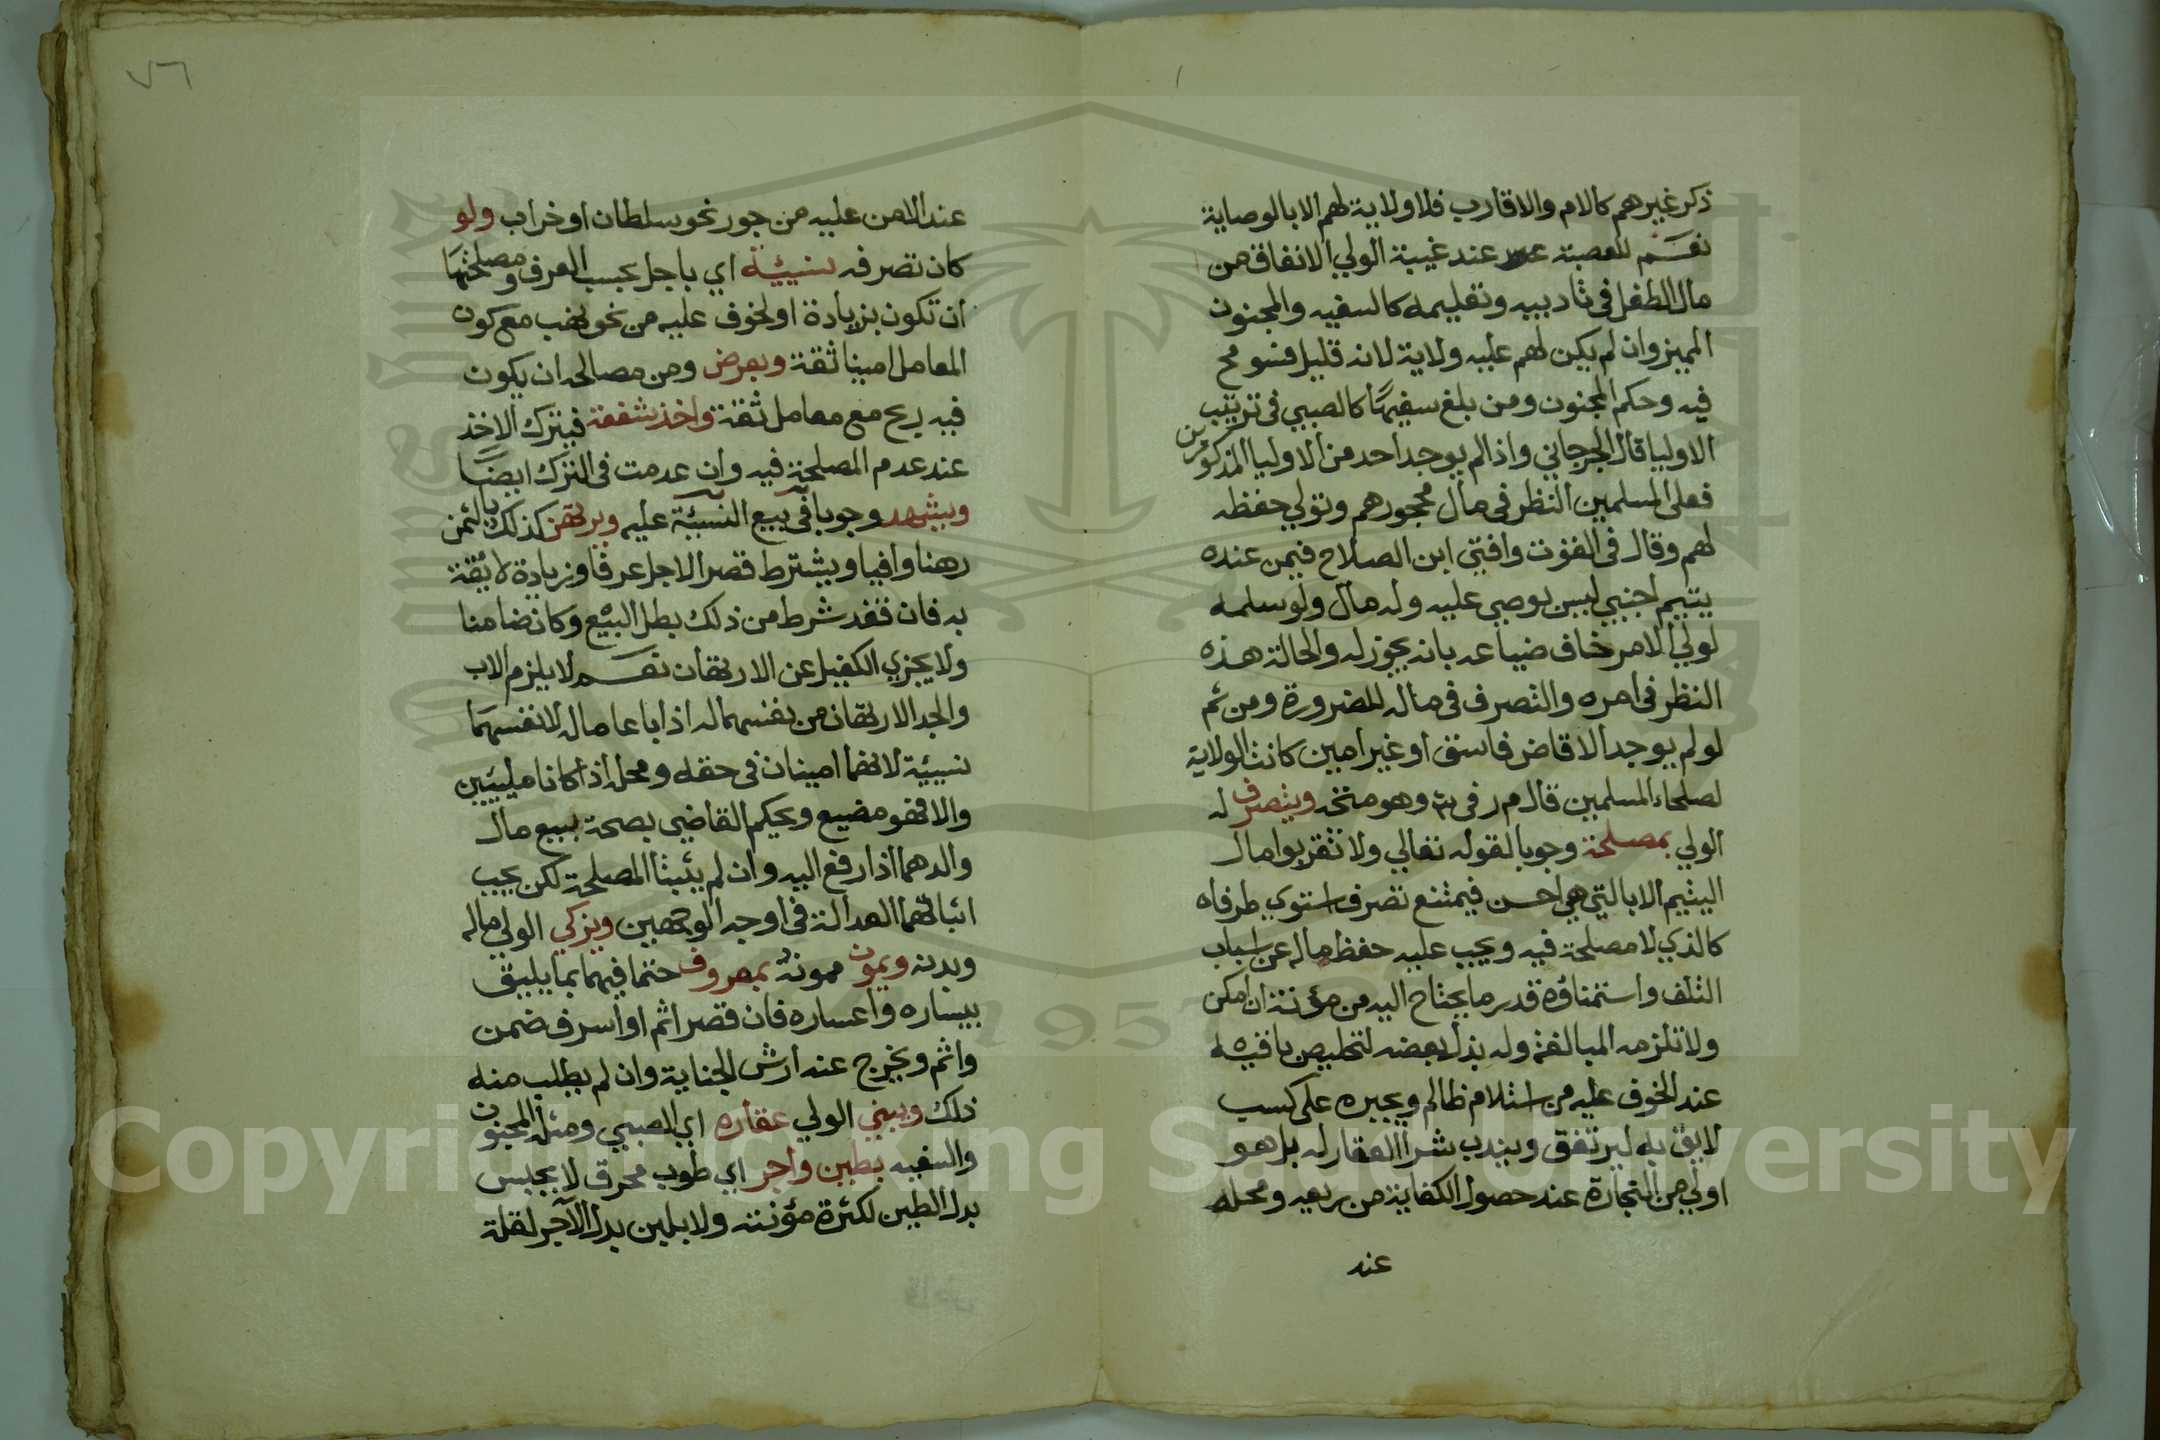 ذكر غيرهم كالام والاقارب فلا ولاية لهم الا بالوصاية
نعم للعصبة عند غيبة الولي الانفاق من
مال الطفل في تاديبه وتعليمه كالسفيه والمجنون
المميز وان لم يكن لهم عليه ولاية لانه قليل فسومح
فيه وحكم المجنون ومن بلغ سفيها كالصبي في ترتيب
الاوليا قال الجرجاني واذا لم يوجد احد من الاوليا المذكورين
فعلى المسلمين النظر في مال محجورهم وتولي حفظه
لهم وقال في القوت وافتى ابن الصلاح فيمن عنده
يتيم اجنبي ليس بوصي عليه وله مال ولو سلمه
لولي الامر خاف ضياعه بانه يجوز له والحالة هذه
النظر في امره والتصرف في ماله للضرورة ومن ثم
لو لم يوجد الا قاض فاسق او غير امين كانت الولاية
لصلحاء المسلمين قال م ر في وهو متجه ويتصرف له
الولي بمصلحة وجوبا لقوله تعالي ولا تقربوا مال
اليتيم الا بالتي هي احسن فيمتنع تصرف استوي طرفاه
كالذي لا مصلحة فيه ويجب عليه حفظ ماله عن اسباب
التلف واستنماؤه قدر ما يحتاج اليه من مؤنته ان امكن
ولا تلزمه المبالغة وله بذل بعضه لتخليص باقيه له
عند الخوف عليه من استلام ظالم ويجبره على كسب
لايق به ليرتفق ويندب شرا العقار له بل هو
اولي من التجارة عند حصول الكفاية من ريعه ومحله
عند
٧٦
عند الامن عليه من جور نحو سلطان او خراب ولو
كان تصرفه نسيئة اي باجل بحسب العرف ومصلحتها
ان تكون بزيادة او لخوف عليه من نحو نهب مع كون
المعامل امينا ثقة وبعرض ومن مصالحه ان يكون
فيه ربح مع معامل ثقة واخذ شفعة فيترك الاخذ
عند عدم المصلحة فيه وان عدمت في الترك ايضا
ويشهد وجوبا في بيع النسيئة عليه ويرتهن كذلك بالثمن
رهنا وافيا ويشترط قصر الاجل عرفا وزيادة لائقة
به فان فقد شرط من ذلك بطل البيع وكان ضامنا
ولا يجزي الكفيل عن الارتهان نعم لا يلزم الاب
والجد الارتهان من نفسهما له اذا باعا ماله لانفسهما
نسيئة لانهما امينان في حقه ومحله اذا كانا مليئين
والا فهو مضيع ويحكم القاضي بصحة بيع مال
والدهما اذا رفع اليه وان لم يثبتا المصلحة لكن يجب
اثباتهما العدالة في اوجه الوجهين ويزكي الولي ماله
وبدنه ويمون ممونه بمعروف حتما فيهما بما يليق
بيساره واعساره فان قصر اثم او اسرف ضمن
واثم ويخرج عنه ارش الجناية وان لم يطلب منه
ذلك ويبني الولي عقاره اي الصبي ومثله المجنون
والسفيه بطين واجر اي طوب محرق لا بجبس
بدل الطين لكثرة مؤنته ولا بلبن بدل الآجر لقلة